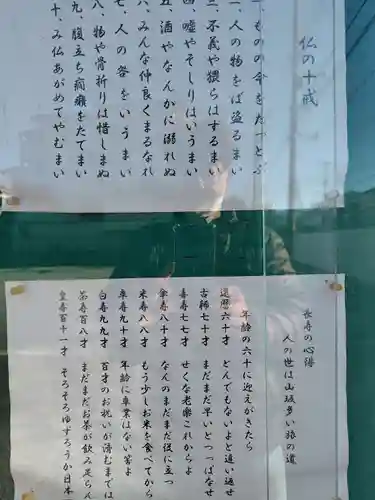 仏の十戒
一、ものの命をたっとぶ
二、人の物をば盗るまい
三、不義や猥らはするまい
四、嘘やそしりはいうまい
五、酒やなんかに溺れぬ
六、みんな仲良くまるなれ
七、人の咎をいうまい
八、物や骨折りは惜しまぬ
九、腹立ち癇癪をたてまい
十、み仏あがめてやむまい
長寿の心得
人の世は山坂多い旅の道
年齢の六十に迎えがきたら
還暦六十才 とんでもないよと追い返せ
古稀七十才 まだまだ早いとつっぱなせ
喜寿七七才 せくな老楽これからよ
傘寿八十才 なんのまだまだ役に立つ
米寿八八才 もう少しお米を食べてから
卒寿九十才 年齢に卒業はない筈よ
白寿九九才 百才のお祝いが済むまでは
茶寿百八才 まだまだお茶が飲み足らん
皇寿百十一才 そろそろゆずろうか日本